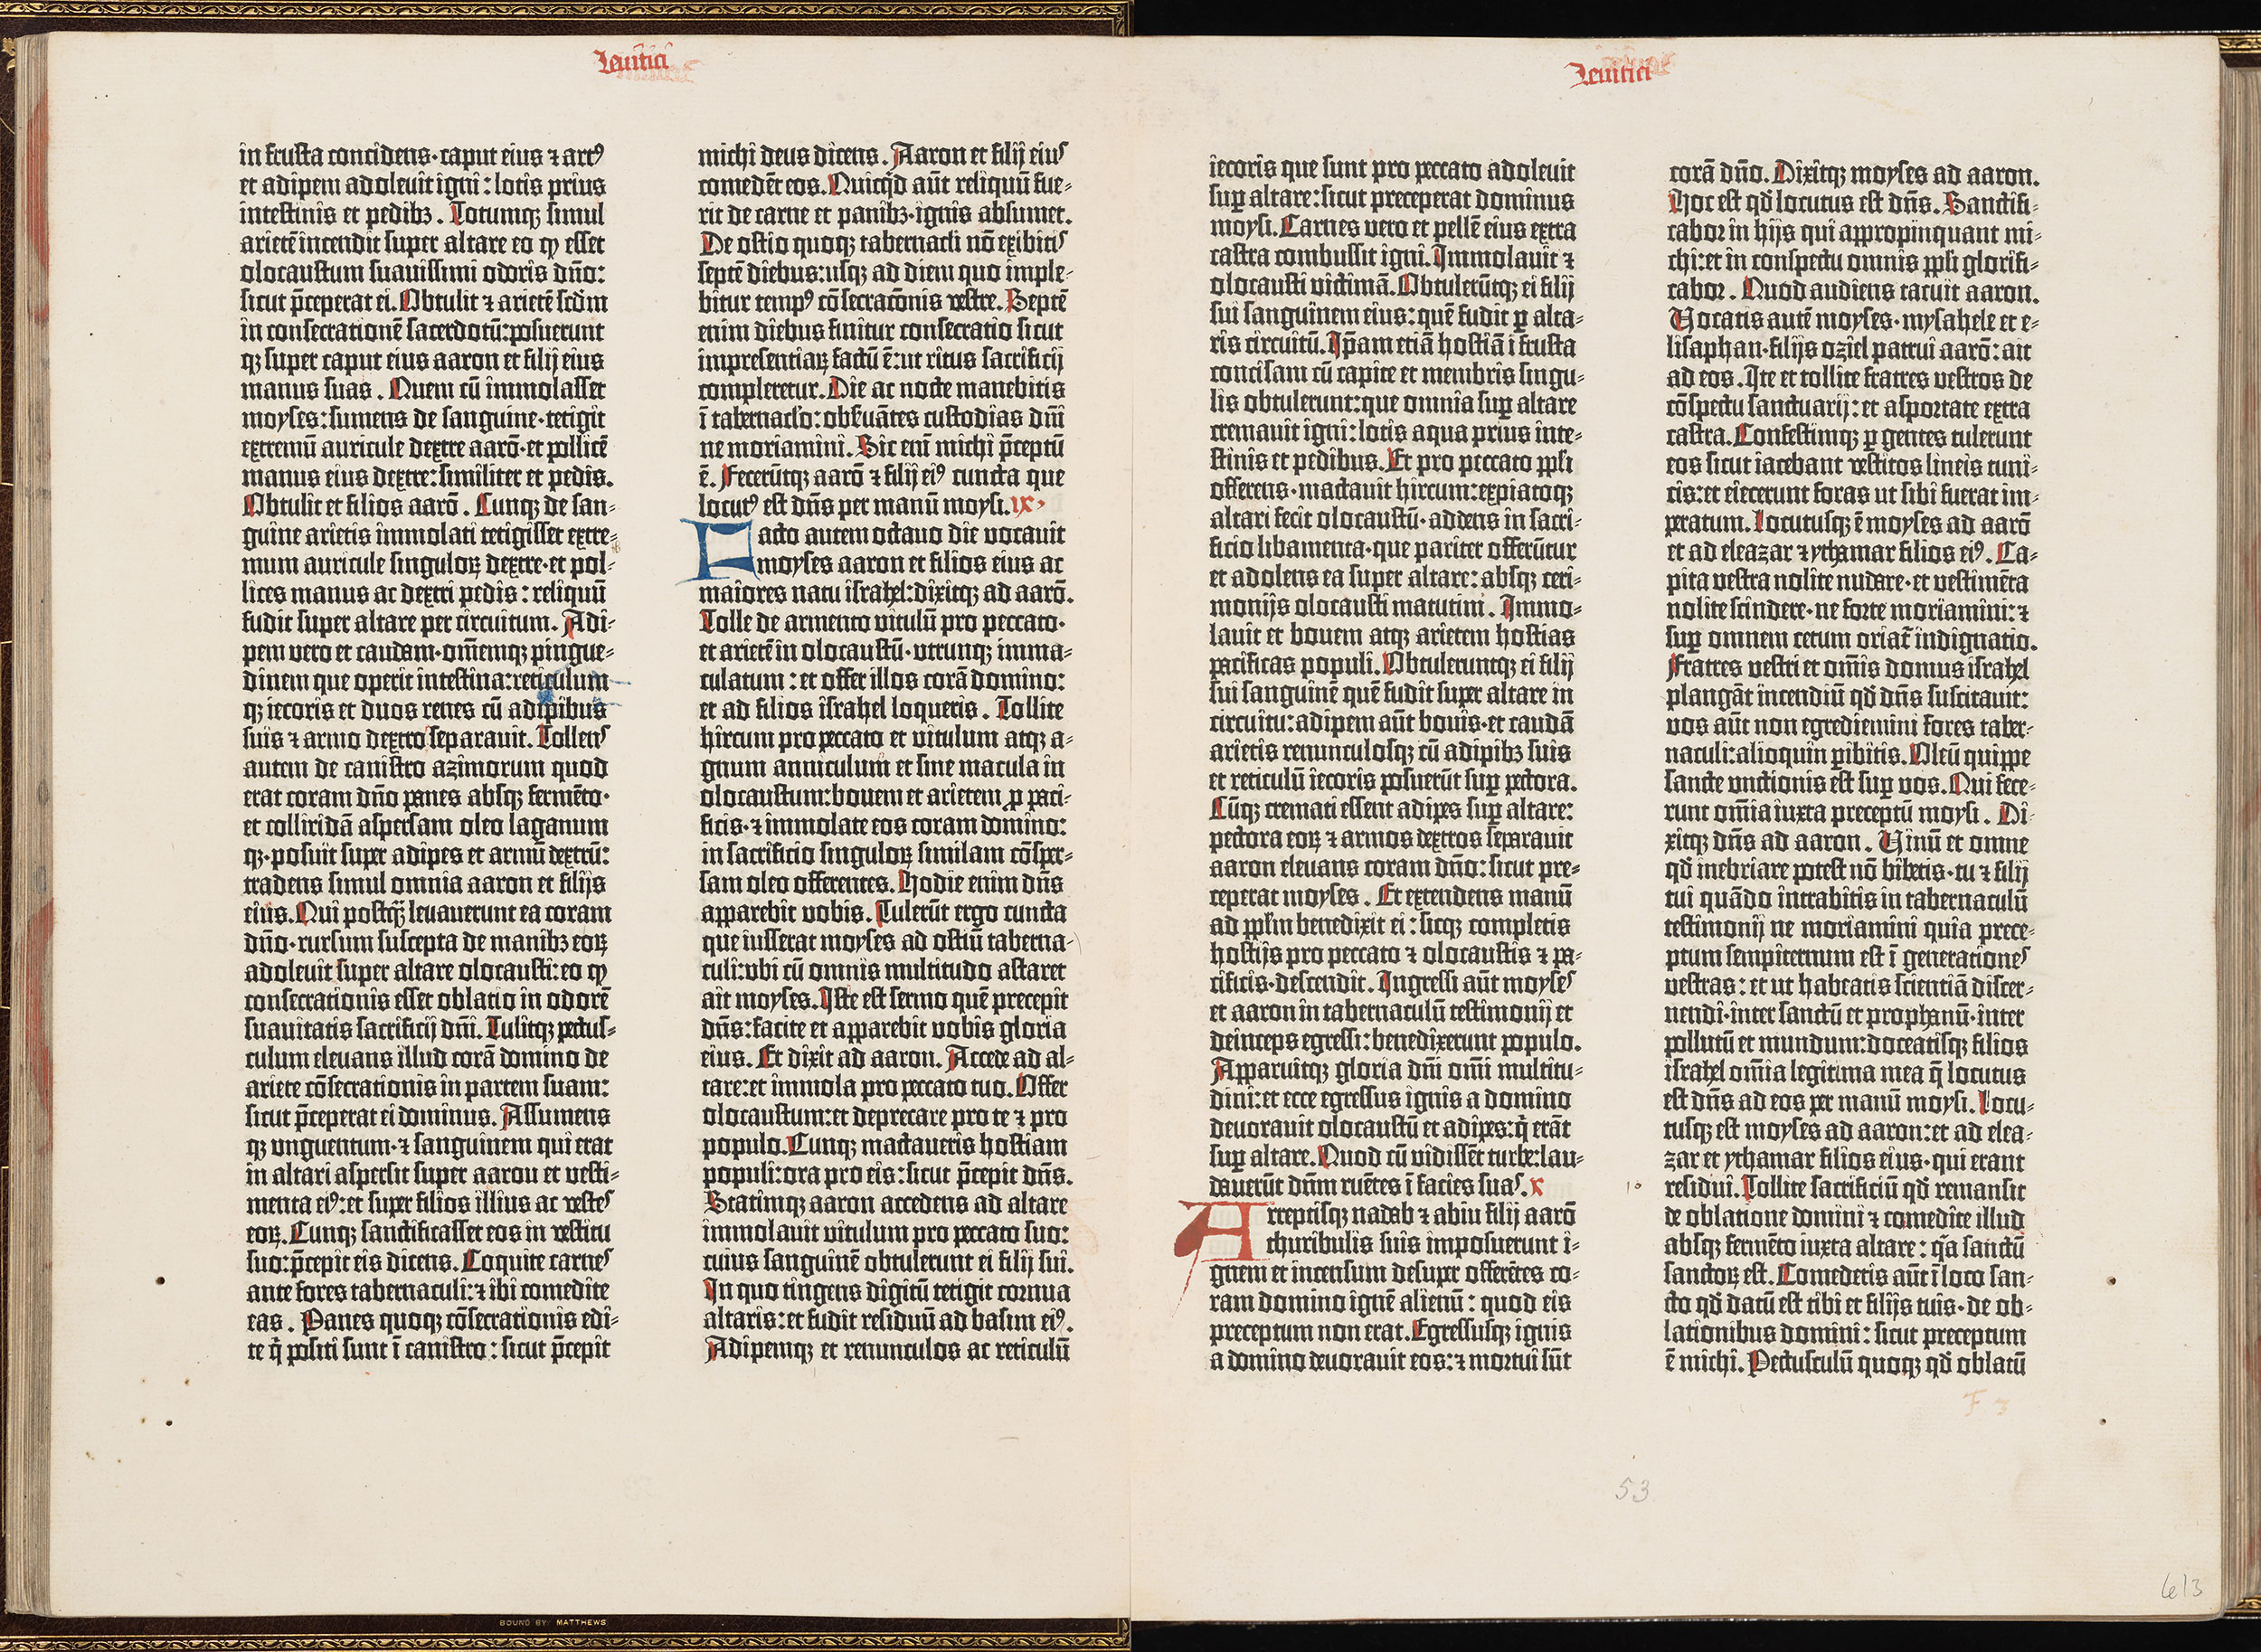 Leuitici
in frusta concidens·caput eius ⁊ artꝰ
et adipem adoleuit igni: lotis prius
intestinis et pedibꝫ. Totumqꝫ simul
arietē incendit super altare eo ꝙ esset
olocaustum suauissimi odoris dño:
sicut p̄ceperat ei. Obtulit ⁊ arietē scd̄m
in consecrationē sacerdotū: posuerunt
qꝫ super caput eius aaron et filij eius
manus suas. Quem cū immolasset
moyses: sumens de sanguine·tetigit
extremū auricule dextre aarō·et pollicē
manus eius dextre: similiter et pedis.
Obtulit et filios aarō. Cunqꝫ de san-
guine arietis immolati tetigisset extre-
mum auricule singuloꝝ dextre·et pol-
lices manus ac dextri pedis: reliquū
fudit super altare per circuitum. Adi-
pem vero et caudam·om̄emqꝫ pingue-
dinem que operit intestina: reticulum
qꝫ iecoris et duos renes cū adipibus
suis ⁊ armo dextro separauit. Tollens
autem de canistro azimorum quod
erat coram dño panes absqꝫ fermēto·
et colliridā aspersam oleo laganum
qꝫ·posuit super adipes et armū dextrū:
tradens simul omnia aaron et filijs
eius. Qui postq̄ leuauerunt ea coram
dño·rursum suscepta de manibꝫ eoꝝ
adoleuit super altare olocausti: eo ꝙ
consecrationis esset oblatio in odorē
suauitatis sacrificij dñi. Tulitqꝫ pectus-
culum eleuans illud corā domino de
ariete cōsecrationis in partem suam:
sicut p̄ceperat ei dominus. Assumens
qꝫ vnguentum·⁊ sanguinem qui erat
in altari aspersit super aaron et vesti-
menta eiꝰ: et super filios illius ac vestes
eoꝝ. Cunqꝫ sanctificasset eos in vestitu
suo: p̄cepit eis dicens. Coquite carnes
ante fores tabernaculi: ⁊ ibi comedite
eas. Panes quoqꝫ cōsecrationis edi-
te q̄ positi sunt ī canistro: sicut p̄cepit
michi deus dicens. Aaron et filij eius
comedēt eos. Quicq̄d aūt reliquū fue-
rit de carne et panibꝫ·ignis absumet.
De ostio quoqꝫ tabernacli nō exibitis
septē diebus: usqꝫ ad diem quo imple-
bitur tempꝰ cōsecracōnis vestre. Septē
enim diebus finitur consecratio sicut
impresentiaꝝ factū ē: ut ritus sacrificij
completetur. Die ac nocte manebitis
ī tabernaclo: obseruātes custodias dñi
ne moriamini. Sic enī michi p̄ceptū
ē. Fecerūtqꝫ aarō ⁊ filij eiꝰ cuncta que
locutꝰ est dñs per manū moysi. ix·
Facto autem octauo die vocauit
moyses aaron et filios eius ac
maiores natu israhel: dixitqꝫ ad aarō.
Tolle de armento vitulū pro peccato·
et arietē in olocaustū·vtrunqꝫ imma-
culatum: et offer illos corā domino:
et ad filios israhel loqueris. Tollite
hircum pro peccato et vitulum atqꝫ a-
gnum anniculum et sine macula in
olocaustum: bouem et arietem ꝓ paci-
ficis·⁊ immolate eos coram domino:
in sacrificio singuloꝝ similam cōsper-
sam oleo offerentes. Hodie enim dñs
apparebit vobis. Tulerūt ergo cuncta
que iusserat moyses ad ostiū taberna-
culi: vbi cū omnis multitudo astaret
ait moyses. Iste est sermo quē precepit
dñs: facite et apparebit vobis gloria
eius. Et dixit ad aaron. Accede ad al-
tare: et immola pro peccato tuo. Offer
olocaustum: et deprecare pro te ⁊ pro
populo. Cunqꝫ mactaueris hostiam
populi: ora pro eis: sicut p̄cepit dñs.
Statimqꝫ aaron accedens ad altare
immolauit vitulum pro peccato suo:
cuius sanguinē obtulerunt ei filij sui.
In quo tingens digitū tetigit cornua
altaris: et fudit residuū ad basim eiꝰ.
Adipemqꝫ et renunculos ac reticulū
BOUND BY MATTHEWS
Leuitici
iecoris que sunt pro peccato adoleuit
suꝑ altare: sicut preceperat dominus
moysi. Carnes vero et pellē eius extra
castra combussit igni. Immolauit ⁊
olocausti victimā. Obtulerūtqꝫ ei filij
sui sanguinem eius: quē fudit ꝑ alta-
ris circuitū. Ip̄am etiā hostiā ī frusta
concisam cū capite et membris singu-
lis obtulerunt: que omnia suꝑ altare
cremauit igni: lotis aqua prius inte-
stinis et pedibus. Et pro peccato ppli
offerens·mactauit hircum: expiatoqꝫ
altari fecit olocaustū·addens in sacri-
ficio libamenta·que pariter offerūtur
et adolens ea super altare: absqꝫ ceri-
monijs olocausti matutini. Immo-
lauit et bouem atqꝫ arietem hostias
pacificas populi. Obtuleruntqꝫ ei filij
sui sanguinē quē fudit super altare in
circuitu: adipem aūt bouis·et caudā
arietis renunculosqꝫ cū adipibꝫ suis
et reticulū iecoris posuerūt suꝑ pectora.
Cūqꝫ cremati essent adipes suꝑ altare:
pectora eoꝝ ⁊ armos dextros separauit
aaron eleuans coram dño: sicut pre-
ceperat moyses. Et extendens manū
ad pplm benedixit ei: sicqꝫ completis
hostijs pro peccato ⁊ olocaustis ⁊ pa-
cificis·descendit. Ingressi aūt moyses
et aaron in tabernaculū testimonij et
deinceps egressi: benedixerunt populo.
Apparuitqꝫ gloria dñi om̄i multitu-
dini: et ecce egressus ignis a domino
deuorauit olocaustū et adipes: q̄ erāt
suꝑ altare. Quod cū vidissēt turbe: lau-
dauerūt dñm ruētes ī facies suas. x
Arreptisqꝫ nadab ⁊ abiu filij aarō
thuribulis suis imposuerunt i-
gnem et incensum desuper offerētes co-
ram domino ignē alienū: quod eis
preceptum non erat. Egressusqꝫ ignis
a domino deuorauit eos: ⁊ mortui sūt
corā dño. Dixitqꝫ moyses ad aaron.
Hoc est qd̄ locutus est dñs. Sanctifi-
cabor in hijs qui appropinquant mi-
chi: et in conspectu omnis ppli glorifi-
cabor. Quod audiens tacuit aaron.
Vocatis autē moyses·mysahele et e-
lisaphan·filijs oziel patrui aarō: ait
ad eos. Ite et tollite fratres vestros de
cōspectu sanctuarij: et asportate extra
castra. Confestimqꝫ ꝑgentes tulerunt
eos sicut iacebant vestitos lineis tuni-
cis: et eiecerunt foras ut sibi fuerat im-
peratum. Locutusqꝫ ē moyses ad aarō
et ad eleazar ⁊ ythamar filios eiꝰ. Ca-
pita vestra nolite nudare·et vestimēta
nolite scindere·ne forte moriamini: ⁊
suꝑ omnem cetum oriat᷑ indignatio.
Fratres vestri et om̄is domus israhel
plangāt incendiū qd̄ dñs suscitauit:
vos aūt non egrediemini fores taber-
naculi: alioquin ꝑibitis. Oleū quippe
sancte vnctionis est suꝑ vos. Qui fece-
runt om̄ia iuxta preceptū moysi. Di-
xitqꝫ dñs ad aaron. Vinū et omne
qd̄ inebriare potest nō bibetis·tu ⁊ filij
tui quādo intrabitis in tabernaculū
testimonij ne moriamini quia prece-
ptum sempiternum est ī generationes
vestras: et ut habeatis scientiā discer-
nendi·inter sanctū et prophanū·inter
pollutū et mundum: doceatisqꝫ filios
israhel om̄ia legitima mea q̄ locutus
est dñs ad eos per manū moysi. Locu-
tusqꝫ est moyses ad aaron: et ad elea-
zar et ythamar filios eius·qui erant
residui. Tollite sacrificiū qd̄ remansit
de oblatione domini ⁊ comedite illud
absqꝫ fermēto iuxta altare: q̄a sanctū
sanctoꝝ est. Comedetis aūt ī loco san-
cto qd̄ datū est tibi et filijs tuis·de ob-
lationibus domini: sicut preceptum
ē michi. Pectusculū quoqꝫ qd̄ oblatū
F 3
53